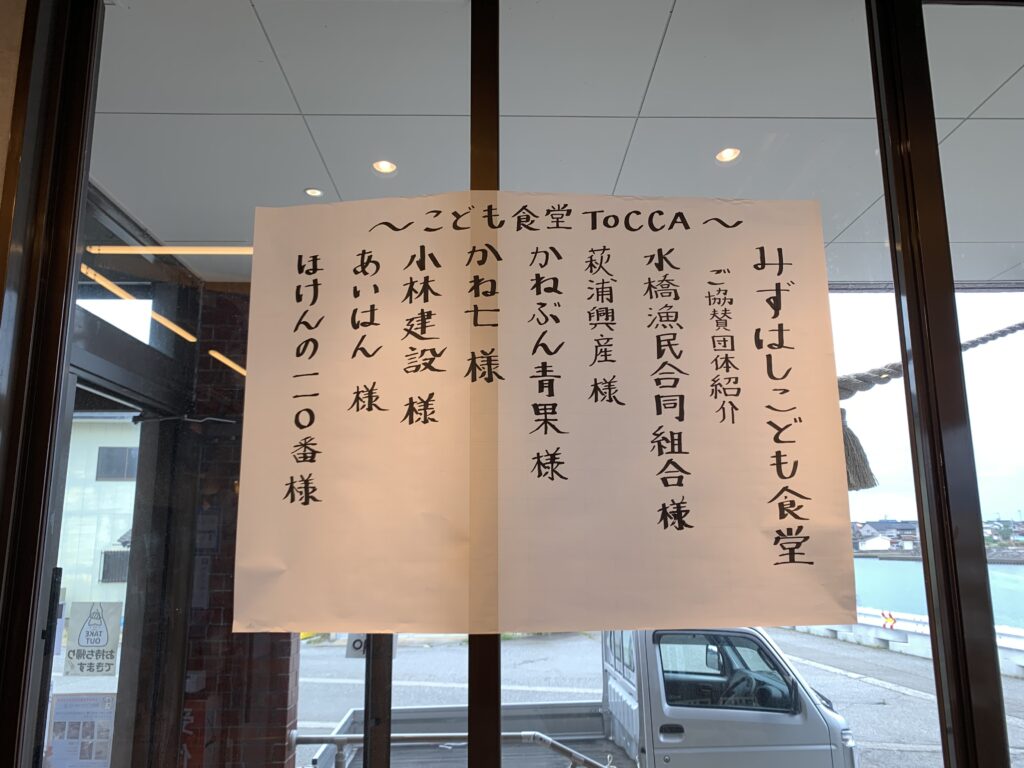 ～こども食堂 TOCCA～
みずはしこども食堂
ご協賛団体紹介
水橋漁民合同組合 様
萩浦興産 様
かねぶん青果 様
かね七 様
小林建設 様
あいはん 様
ほけんの一一〇番 様
TAKE
OUT
お持ち帰り
できます